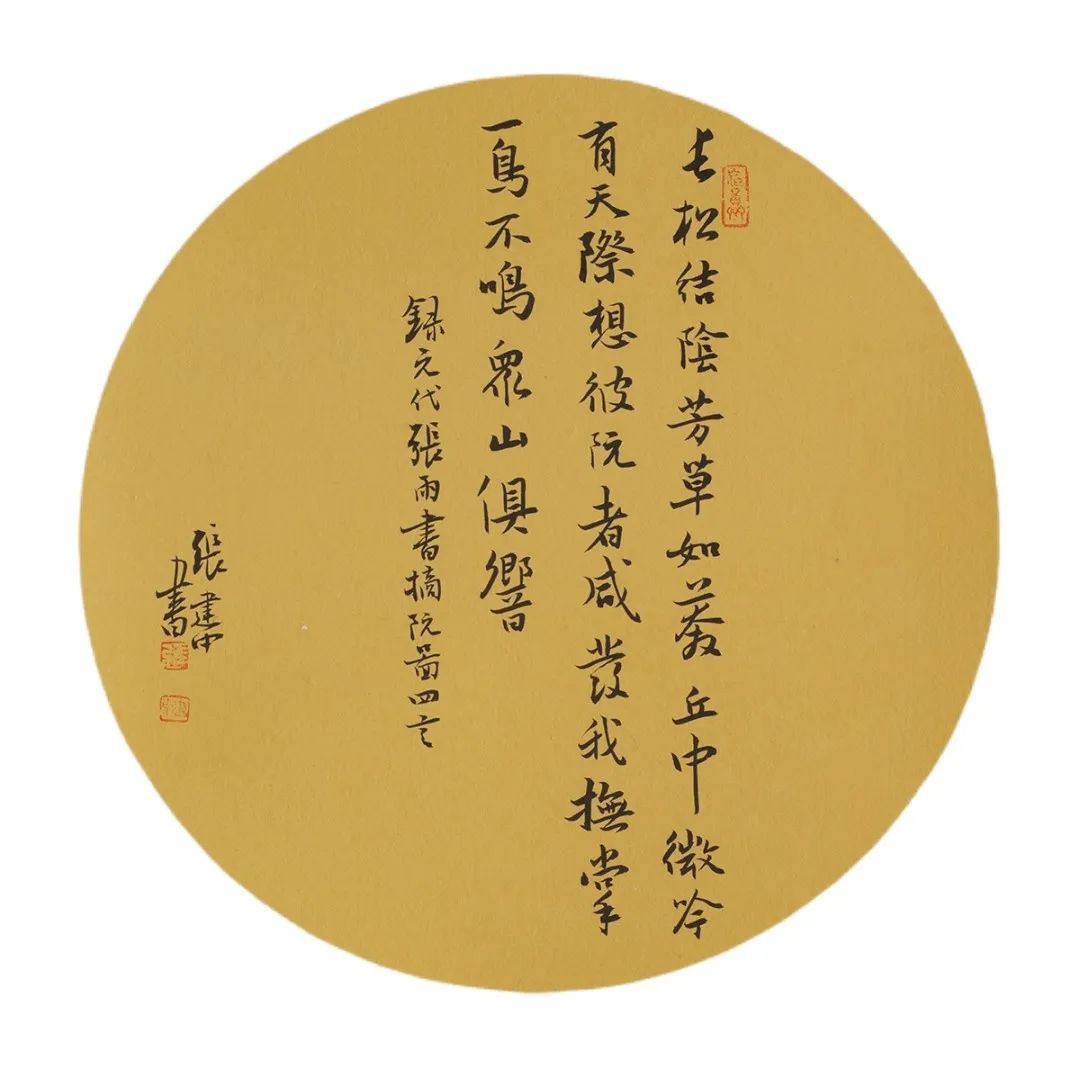 長松結陰芳草如養丘中微吟
有天際想彼阮者咸發我撫掌
一鳥不鳴眾山俱響
錄元代張雨書摘阮圖四言
張建中
書